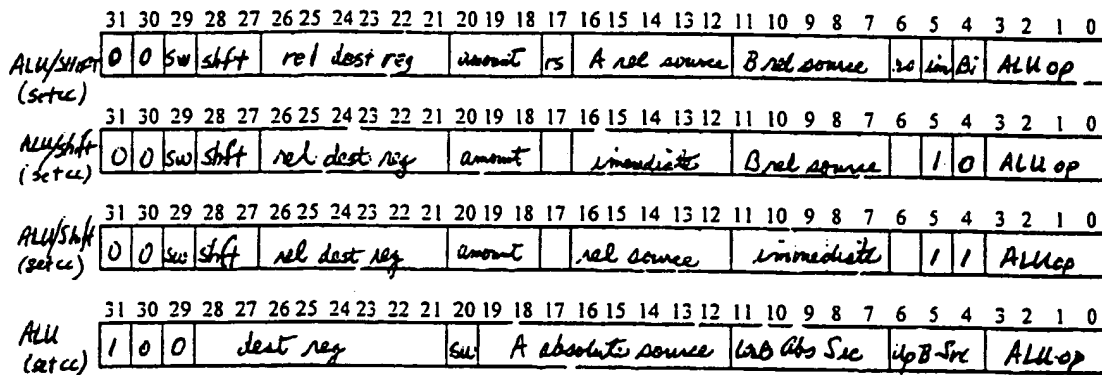 31 30 29 28 27 26 25 24 23 22 21 20 19 18 17 16 15 14 13 12 11 10 9 8 7 6 5 4 3 2 1 0
ALU/SHIFT 0 0 sw shft rel dest reg amount rs A rel source B rel source im Bi ALU op
(setcc)
31 30 29 28 27 26 25 24 23 22 21 20 19 18 17 16 15 14 13 12 11 10 9 8 7 6 5 4 3 2 1 0
ALU/shft 0 0 sw shft rel dest reg amount immediate B rel source 1 0 ALU op
(setcc)
31 30 29 28 27 26 25 24 23 22 21 20 19 18 17 16 15 14 13 12 11 10 9 8 7 6 5 4 3 2 1 0
ALU/Shft 0 0 sw shft rel dest reg amount rel source immediate 1 1 ALU op
(setcc)
31 30 29 28 27 26 25 24 23 22 21 20 19 18 17 16 15 14 13 12 11 10 9 8 7 6 5 4 3 2 1 0
ALU 1 0 0 dest reg sw A absolute source B Abs Src B-Src ALU-op
(setcc)